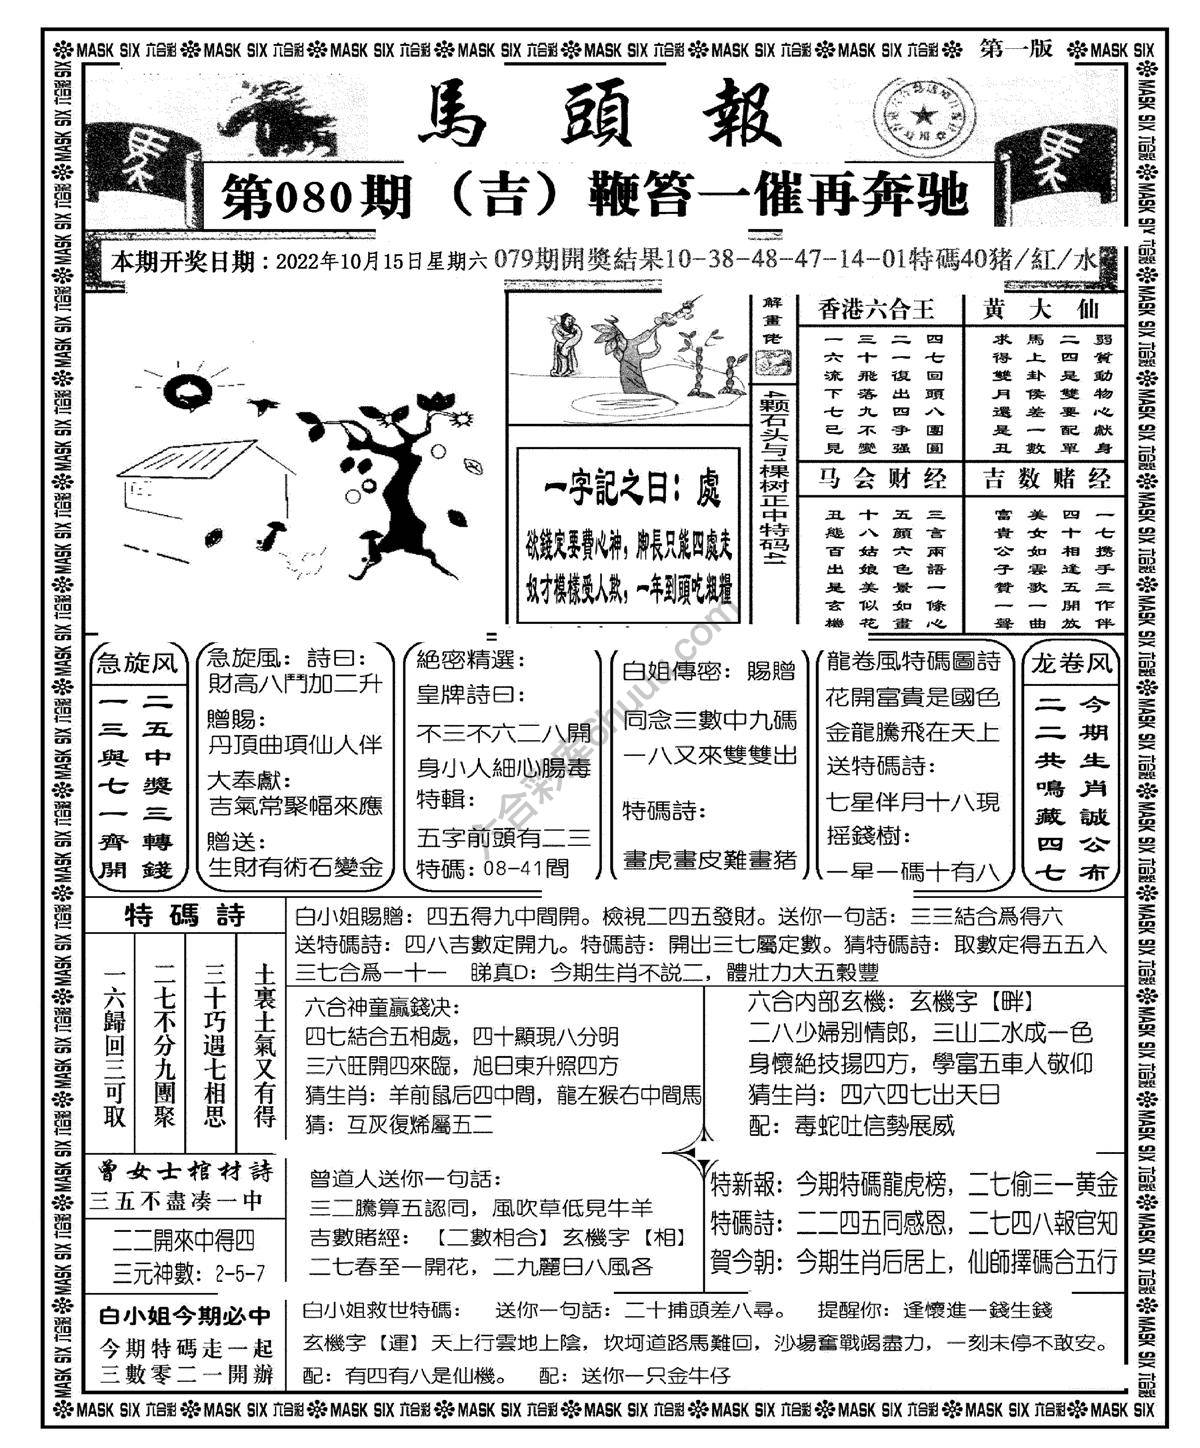 MASK SIX 六合彩 MASK SIX 六合彩 MASK SIX 六合彩 MASK SIX 六合彩 MASK SIX 六合彩 MASK SIX 六合彩 MASK SIX 六合彩 第一版 MASK SIX
馬頭報
第080期（吉）鞭笞一催再奔驰
本期开奖日期：2022年10月15日星期六 079期開獎結果10-38-48-47-14-01特碼40猪/紅/水
解畫佬
4颗石头与1棵树正中特码41
一字記之曰：處
欲錢定要費心神，脚長只能四處走
奴才模樣受人欺，一年到頭吃粗糧
香港六合王
四七回頭八團圓
二一復出四争强
三十飛落九不變
一六流下七已見
黄大仙
弱質動物心獻身
二四是雙要配單
馬上卦侯差一數
求得雙月還是丑
马会财经
三言兩語一條心
五顏六色景如畫
十八姑娘美似花
丑態百出是玄機
吉数赌经
一七携手三作伴
四十相逢五開放
美女如雲歌一曲
富貴公子贊一聲
急旋风
二五中獎三轉錢
一三與七一齊開
急旋風：詩曰：
財高八鬥加二升
贈賜：
丹頂曲項仙人伴
大奉獻：
吉氣常聚幅來應
贈送：
生財有術石變金
絕密精選：
皇牌詩曰：
不三不六二八開
身小人細心腸毒
特輯：
五字前頭有二三
特碼：08-41間
白姐傳密：賜贈
同念三數中九碼
一八又來雙雙出
特碼詩：
畫虎畫皮難畫猪
龍卷風特碼圖詩
花開富貴是國色
金龍騰飛在天上
送特碼詩：
七星伴月十八現
摇錢樹：
一星一碼十有八
龙卷风
今期生肖誠公布
二二共鳴藏四七
六合彩库6huuu.com
特碼詩
土裏土氣又有得
三十巧遇七相思
二七不分九團聚
一六歸回三可取
白小姐賜贈：四五得九中間開。檢視二四五發財。送你一句話：三三結合爲得六
送特碼詩：四八吉數定開九。特碼詩：開出三七屬定數。猜特碼詩：取數定得五五入
三七合爲一十一 睇真D：今期生肖不説二，體壯力大五穀豐
六合神童贏錢决：
四七結合五相處，四十顯現八分明
三六旺開四來臨，旭日東升照四方
猜生肖：羊前鼠后四中間，龍左猴右中間馬
猜：互灰復烯屬五二
六合内部玄機：玄機字【畔】
二八少婦别情郎，三山二水成一色
身懷絶技揚四方，學富五車人敬仰
猜生肖：四六四七出天日
配：毒蛇吐信勢展威
曾女士棺材詩
三五不盡凑一中
二二開來中得四
三元神數：2-5-7
曾道人送你一句話：
三二騰算五認同，風吹草低見牛羊
吉數賭經：【二數相合】玄機字【相】
二七春至一開花，二九麗日八風各
特新報：今期特碼龍虎榜，二七偷三一黄金
特碼詩：二二四五同感恩，二七四八報官知
賀今朝：今期生肖后居上，仙師擇碼合五行
白小姐今期必中
今期特碼走一起
三數零二一開辦
白小姐救世特碼： 送你一句話：二十捕頭差八尋。 提醒你：逢懷進一錢生錢
玄機字【運】天上行雲地上陰，坎坷道路馬難回，沙場奮戰竭盡力，一刻未停不敢安。
配：有四有八是仙機。 配：送你一只金牛仔
MASK SIX 六合彩 MASK SIX 六合彩 MASK SIX 六合彩 MASK SIX 六合彩 MASK SIX 六合彩 MASK SIX 六合彩 MASK SIX 六合彩 MASK SIX 六合彩 MASK SIX